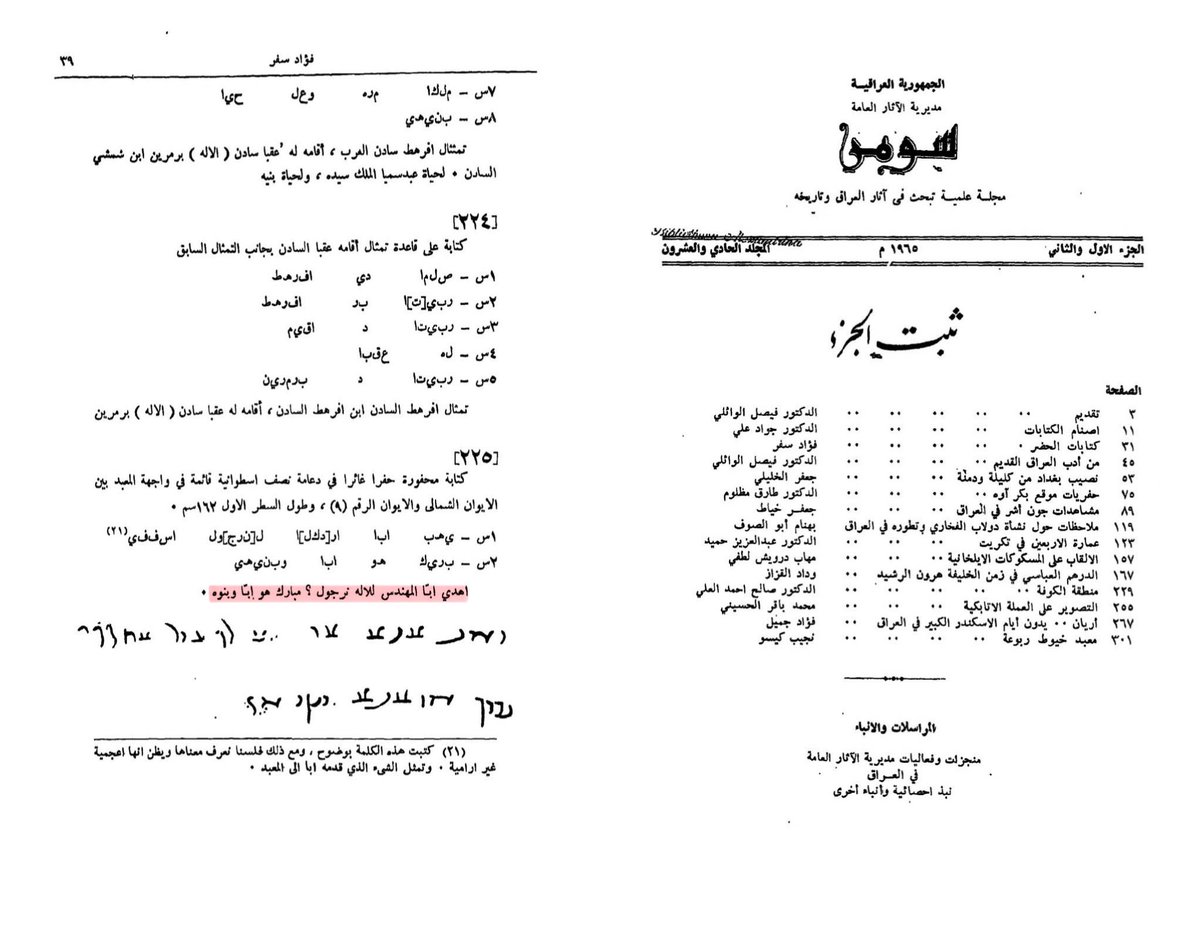 الجمهورية العراقية
مديرية الآثار العامة
سومر
مجلة علمية تبحث في آثار العراق وتاريخه
الجزء الاول والثاني ١٩٦٥ م المجلد الحادي والعشرون
ثبت الجزء
الصفحة
٣ تقديم ·· ·· ·· ·· ·· الدكتور فيصل الوائلي
١١ اصنام الكتابات ·· ·· ·· ·· الدكتور جواد علي
٣١ كتابات الحضر ·· ·· ·· ·· فؤاد سفر
٤٥ من أدب العراق القديم ·· ·· ·· الدكتور فيصل الوائلي
٥٣ نصيب بغداد من كليلة ودمنة ·· ·· جعفر الخليلي
٧٥ حفريات موقع بكر آوه ·· ·· ·· الدكتور طارق مظلوم
٨٩ مشاهدات جون أشر في العراق ·· ·· جعفر خياط
١١٩ ملاحظات حول نشأة دولاب الفخاري وتطوره في العراق بهنام أبو الصوف
١٢٣ عمارة الاربعين في تكريت ·· ·· ·· الدكتور عبدالعزيز حميد
١٥٧ الالقاب على المسكوكات الايلخانية ·· ·· مهاب درويش لطفي
١٦٧ الدرهم العباسي في زمن الخليفة هرون الرشيد ·· وداد القزاز
٢٢٩ منطقة الكوفة ·· ·· ·· ·· الدكتور صالح احمد العلي
٢٥٥ التصوير على العملة الاتابكية ·· ·· محمد باقر الحسيني
٢٦٧ أريان ·· يدون أيام الاسكندر الكبير في العراق ·· فؤاد جميل
٣٠١ معبد خيوط ربوعة ·· ·· ·· ·· نجيب كيسو
المراسلات والانباء
منجزات وفعاليات مديرية الآثار العامة
في العراق
نبذ احصائية وأنباء أخرى
فؤاد سفر ٣٩
س٧ – ملكا مره وعل حيا
س٨ – بنيهي
تمثال افرهط سادن العرب ، أقامه له عقبا سادن ( الاله ) برمرين ابن شمشي
السادن · لحياة عبدسميا الملك سيده ، ولحياة بنيه
[٢٢٤]
كتابة على قاعدة تمثال أقامه عقبا السادن بجانب التمثال السابق
س١ – صلما دي افرهط
س٢ – ربي[ت]ا بر افرهط
س٣ – ربيتا د اقيم
س٤ – له عقبا
س٥ – ربيتا د برمرين
تمثال افرهط السادن ابن افرهط السادن ، أقامه له عقبا سادن ( الاله ) برمرين
[٢٢٥]
كتابة محفورة حفرا غائرا في دعامة نصف اسطوانية قائمة في واجهة المعبد بين
الايوان الشمالى والايوان الرقم (٩) ، وطول السطر الاول ١٦٢سم ·
س١ – يهب ابا ار[دكل]ا ل[نرج]ول اسففي(٢١)
س٢ – بريك هو ابا وبنيهي
اهدي ابّا المهندس للاله نرجول ؟ مبارك هو ابّا وبنوه ·
(٢١) كتبت هذه الكلمة بوضوح ، ومع ذلك فلسنا نعرف معناها ويظن انها اعجمية
غير ارامية · وتمثل الشىء الذي قدمه ابا الى المعبد ·